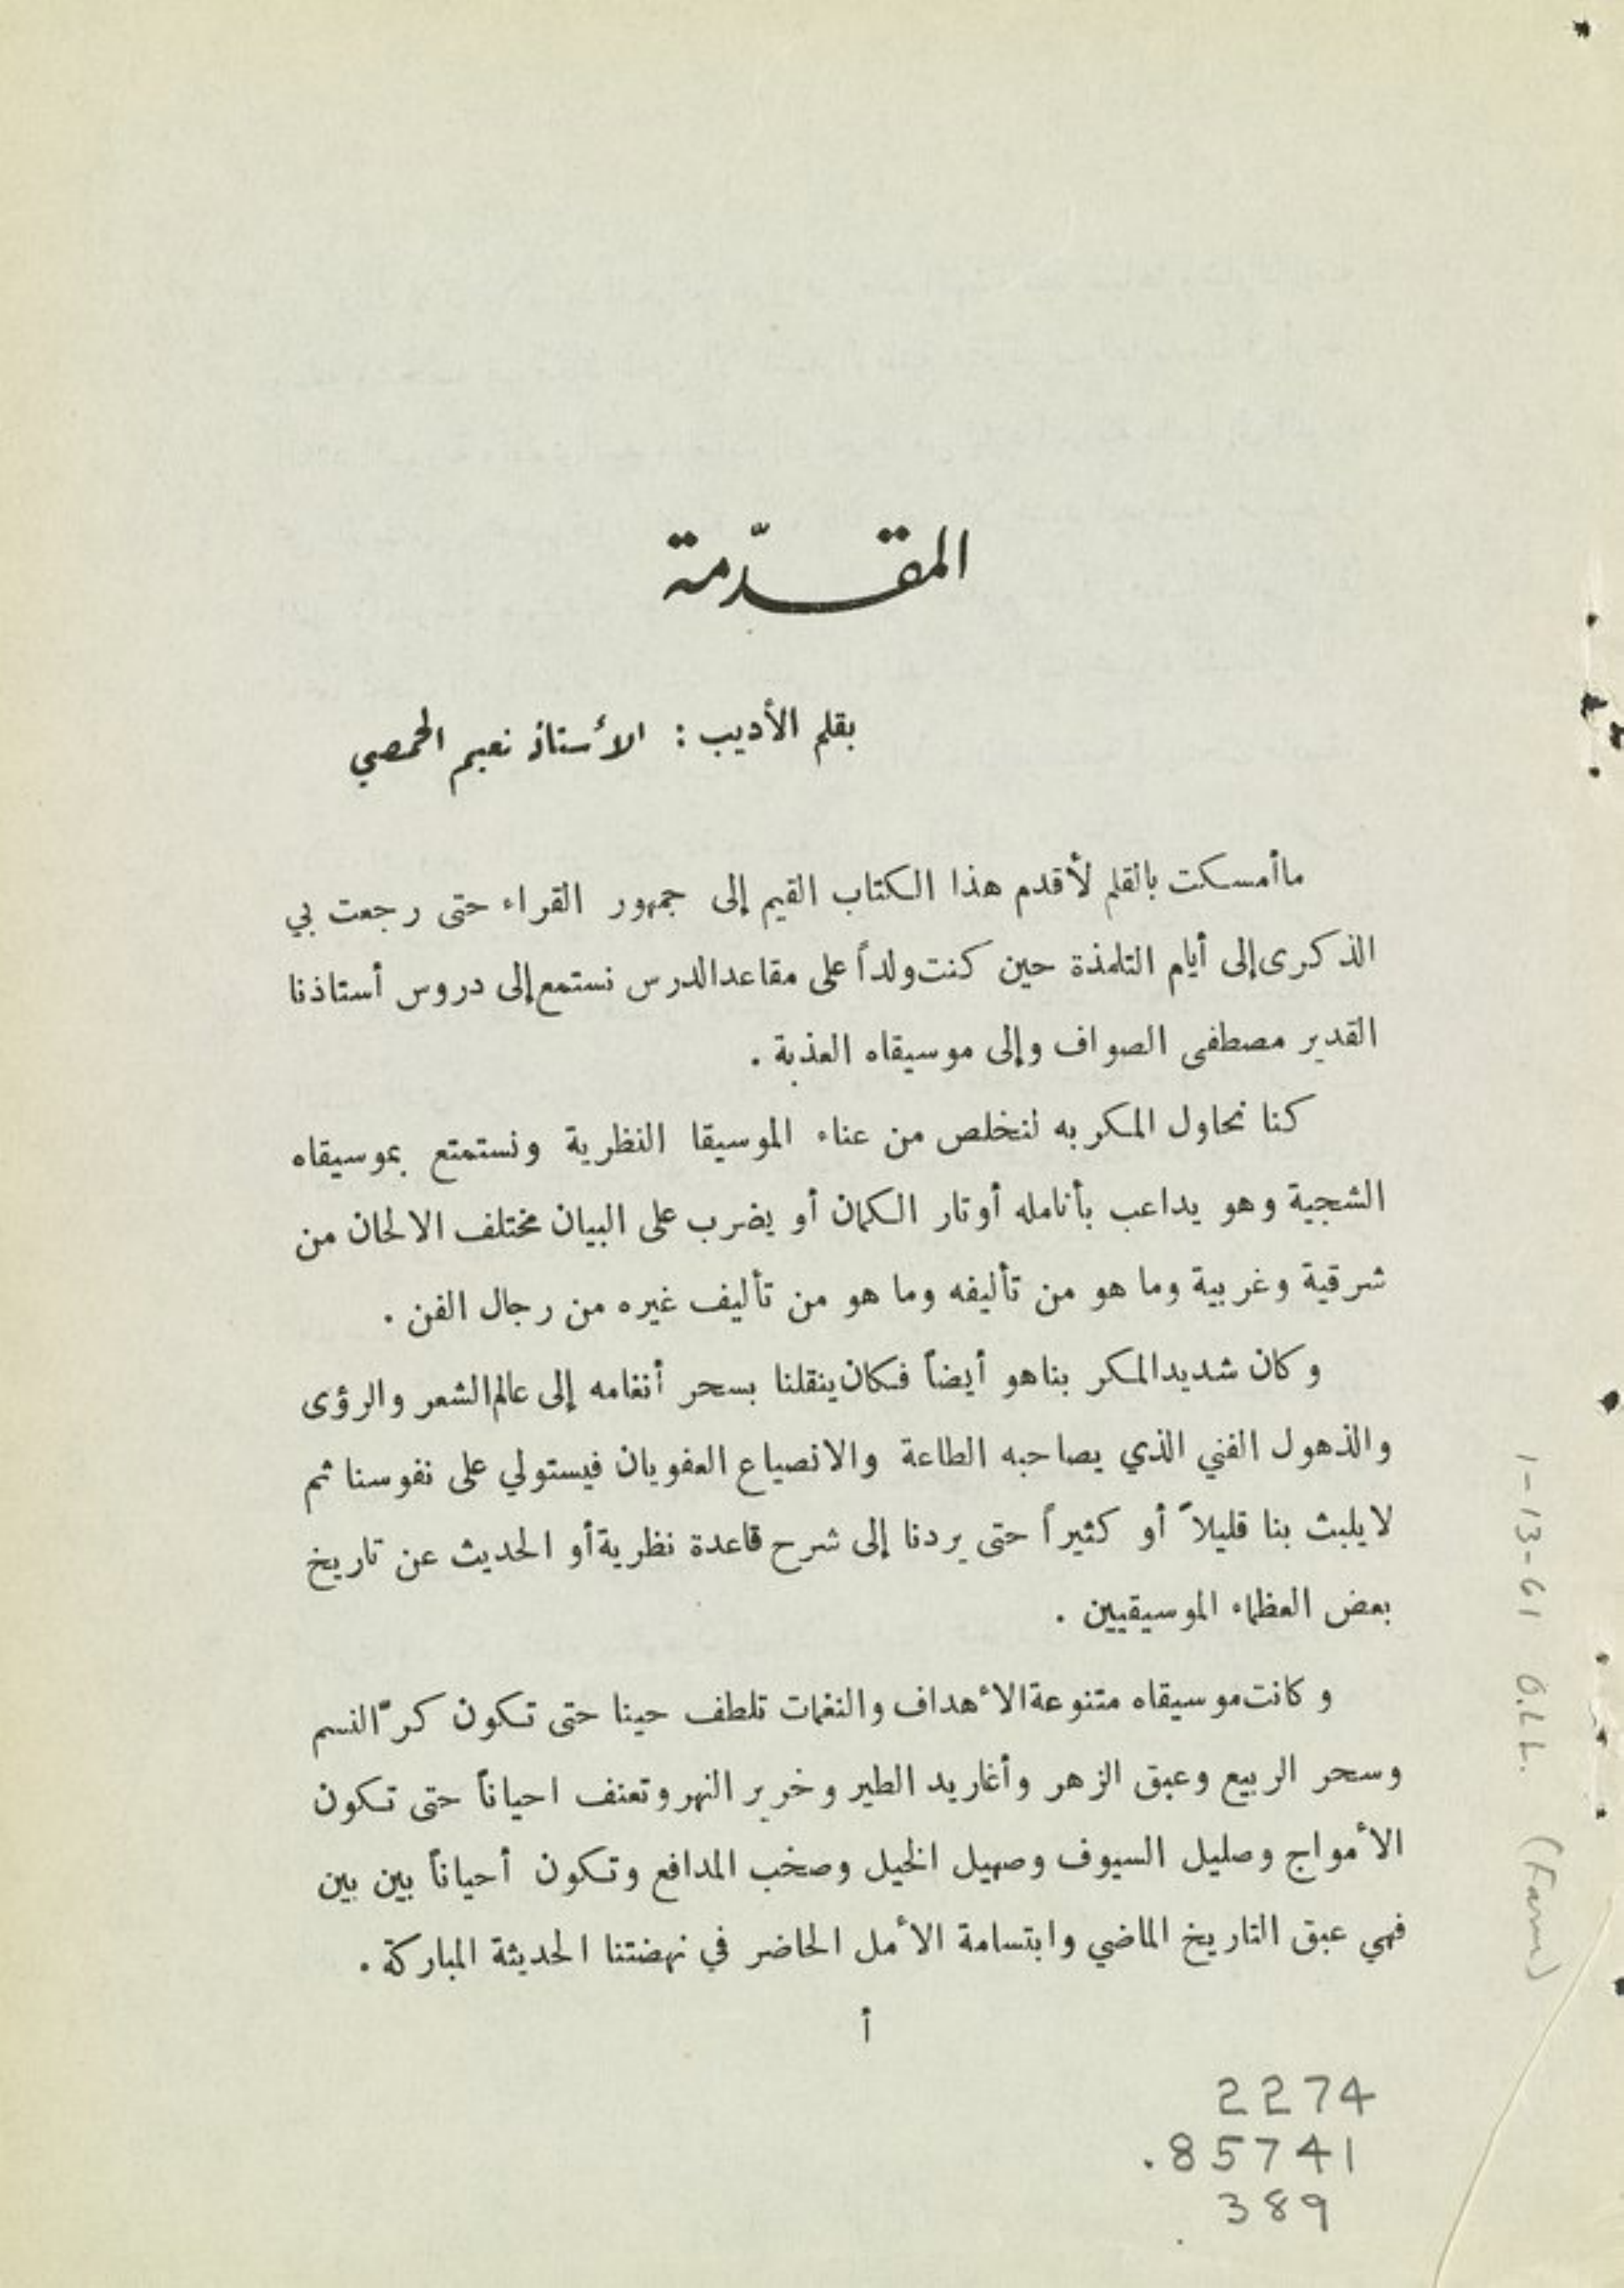 المقـــدّمة
بقلم الأديب : الأستاذ نعيم الحمصي
ماأمسكت بالقلم لأقدم هذا الكتاب القيم إلى جمهور القراء حتى رجعت بي
الذكرى إلى أيام التلمذة حين كنت ولداً على مقاعد الدرس نستمع إلى دروس أستاذنا
القدير مصطفى الصواف وإلى موسيقاه العذبة .
كنا نحاول المكر به لنخلص من عناء الموسيقا النظرية ونستمتع بموسيقاه
الشجية وهو يداعب بأنامله أوتار الكمان أو يضرب على البيان مختلف الالحان من
شرقية وغربية وما هو من تأليفه وما هو من تأليف غيره من رجال الفن .
وكان شديد المكر بنا هو أيضاً فكان ينقلنا بسحر أنغامه إلى عالم الشعر والرؤى
والذهول الفني الذي يصاحبه الطاعة والانصياع العفويان فيستولي على نفوسنا ثم
لا يلبث بنا قليلاً أو كثيراً حتى يردنا إلى شرح قاعدة نظرية أو الحديث عن تاريخ
بعض العظماء الموسيقيين .
وكانت موسيقاه متنوعة الأهداف والنغمات تلطف حينا حتى تكون كرّ النسم
وسحر الربيع وعبق الزهر وأغاريد الطير وخرير النهر وتعنف احياناً حتى تكون
الأمواج وصليل السيوف وصهيل الخيل وصخب المدافع وتكون أحياناً بين بين
فهي عبق التاريخ الماضي وابتسامة الأمل الحاضر في نهضتنا الحديثة المباركة .
أ
2274
.85741
389
1-13-61 O.L.L. (Farm)